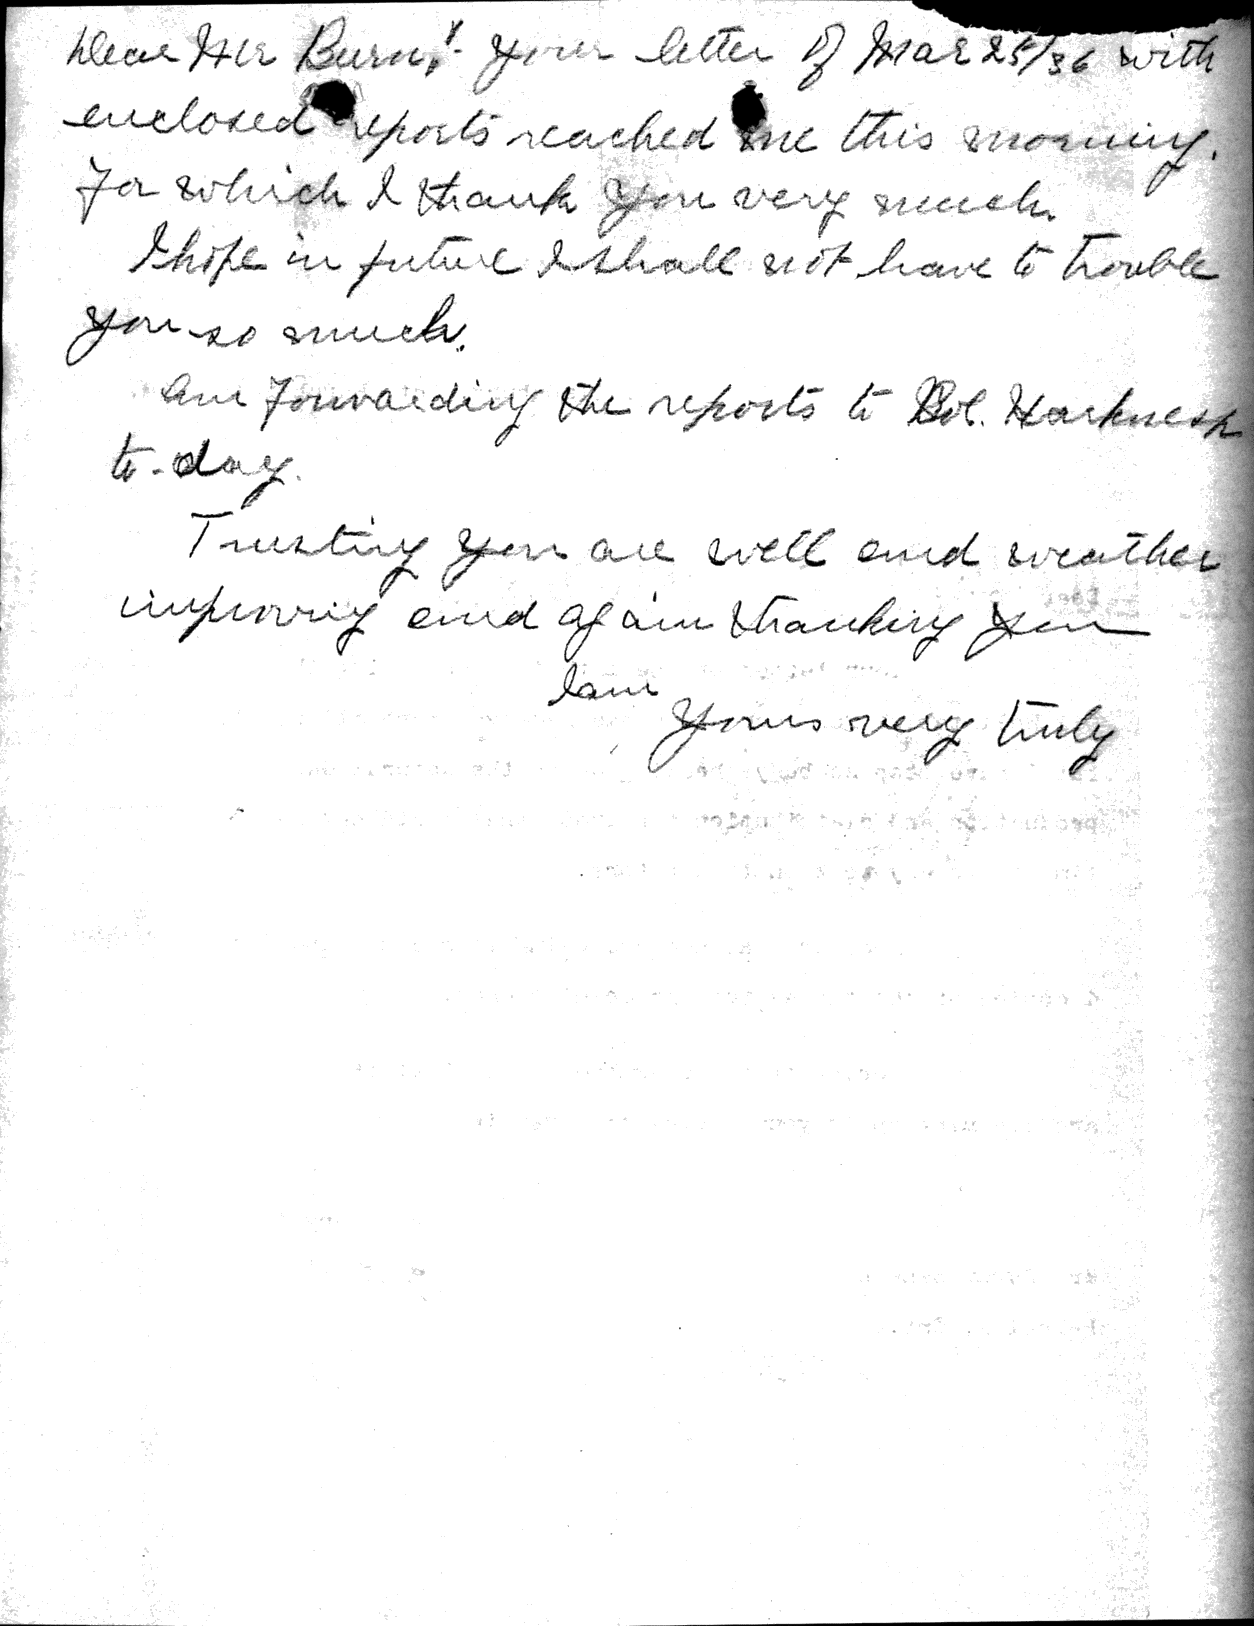 Dear Mr Burn,:- your letter of Mar 25/36 with
enclosed reports reached me this morning.
For which I thank you very much.
I hope in future I shall not have to trouble
you so much.
Am forwarding the reports to Col. Harkness
to-day.
Trusting you are well and weather
improving and again thanking you
I am
Yours very truly